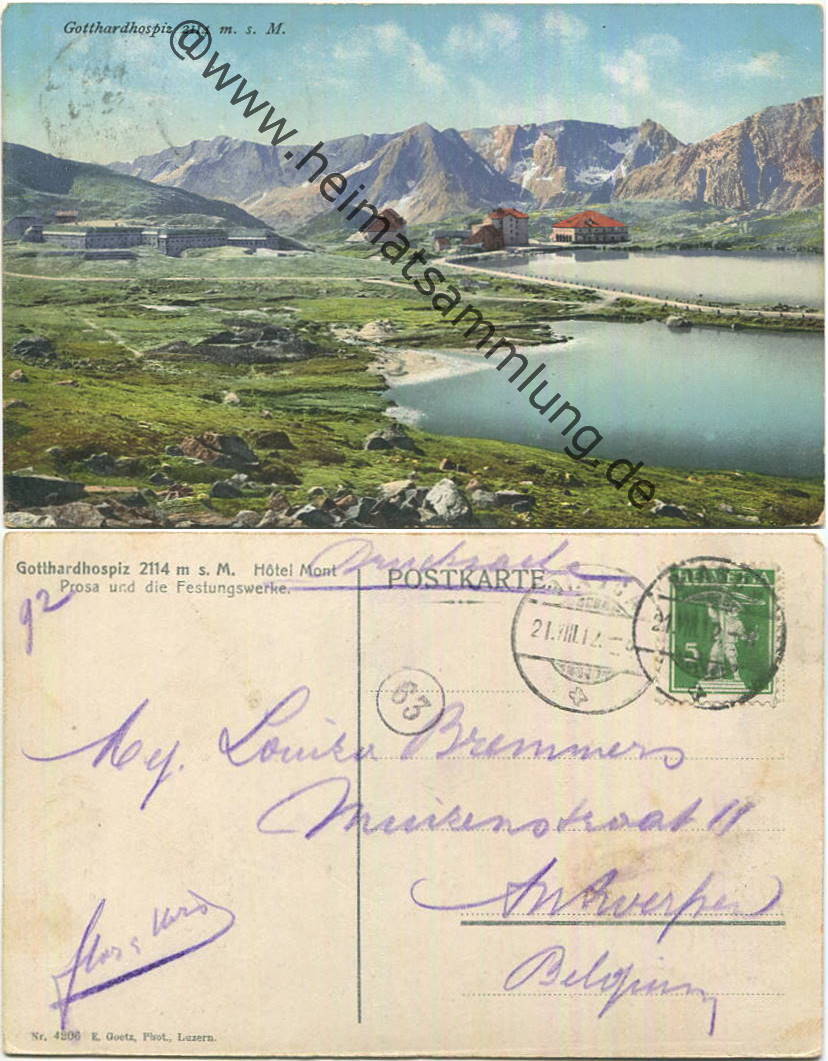 Gotthardhospiz 2114 m. s. M.
@www.heimatsammlung.de
Gotthardhospiz 2114 m s. M. Hôtel Mont
Prosa und die Festungswerke.
Drucksache
POSTKARTE
92
HELVETIA
5
21.VIII.12.
21.VIII.12.
63
Mej. Louiza Bremmers
Muizenstraat 11
Antwerpen
Belgium
Nr. 4206 E. Goetz, Phot., Luzern.